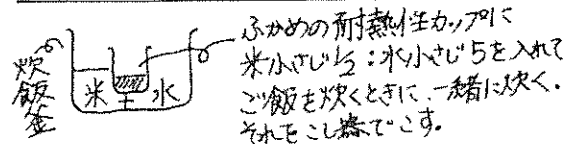 ふかめの耐熱性カップに
米小さじ1/2:水小さじ5を入れて
ご飯を炊くときに、一緒に炊く。
それをこし器でこす。
炊飯釜
米 水